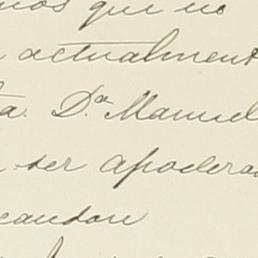 mos que no
actualment
ta. D.ª Manuel
ser apodera
candon